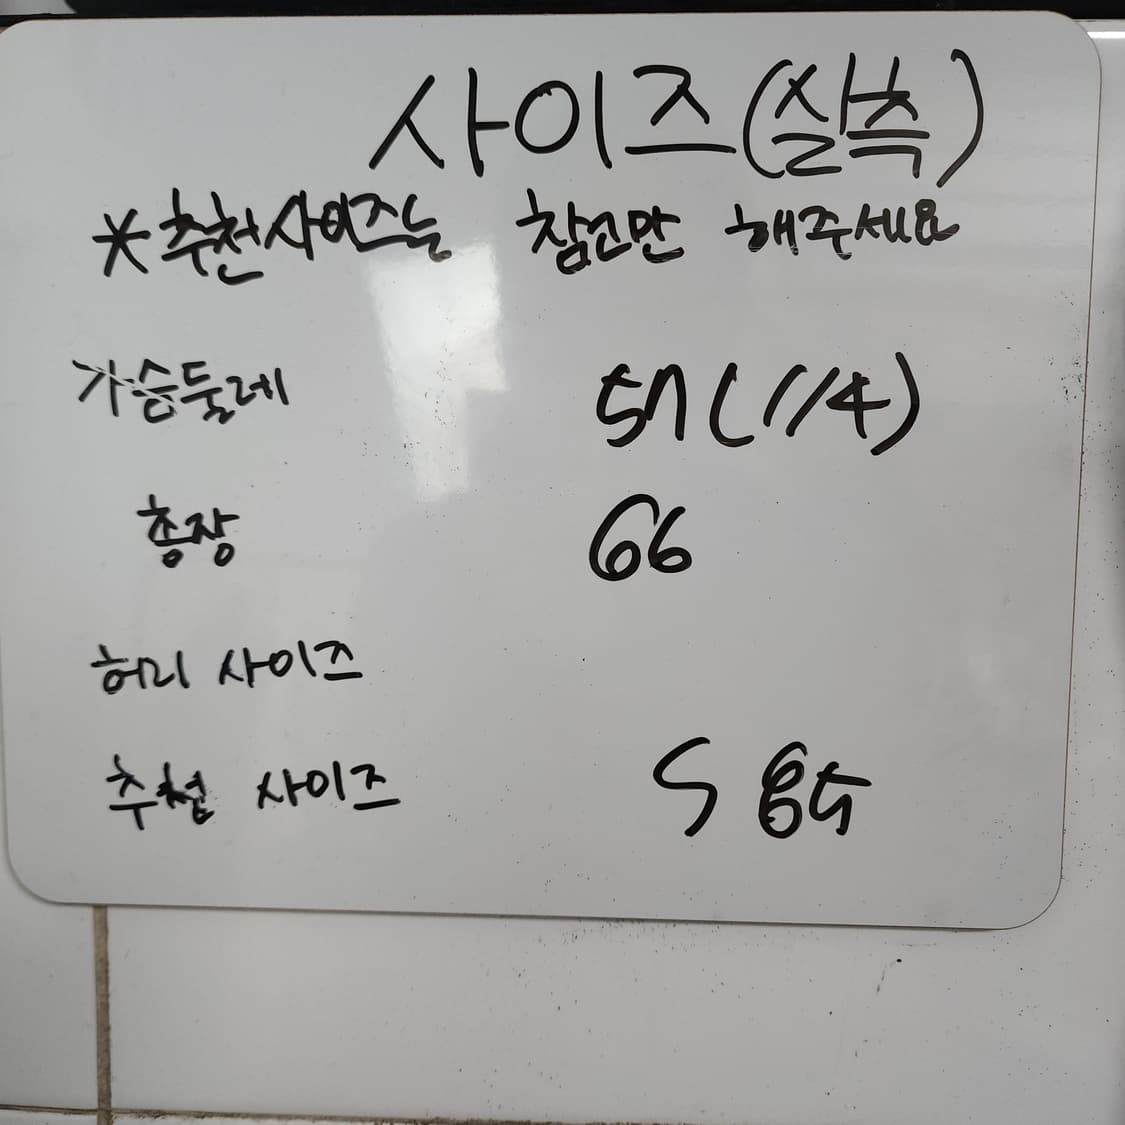 사이즈(실측)
*추천사이즈는 참고만 해주세요
가슴둘레 57(1/4)
총장 66
허리 사이즈
추천 사이즈 S